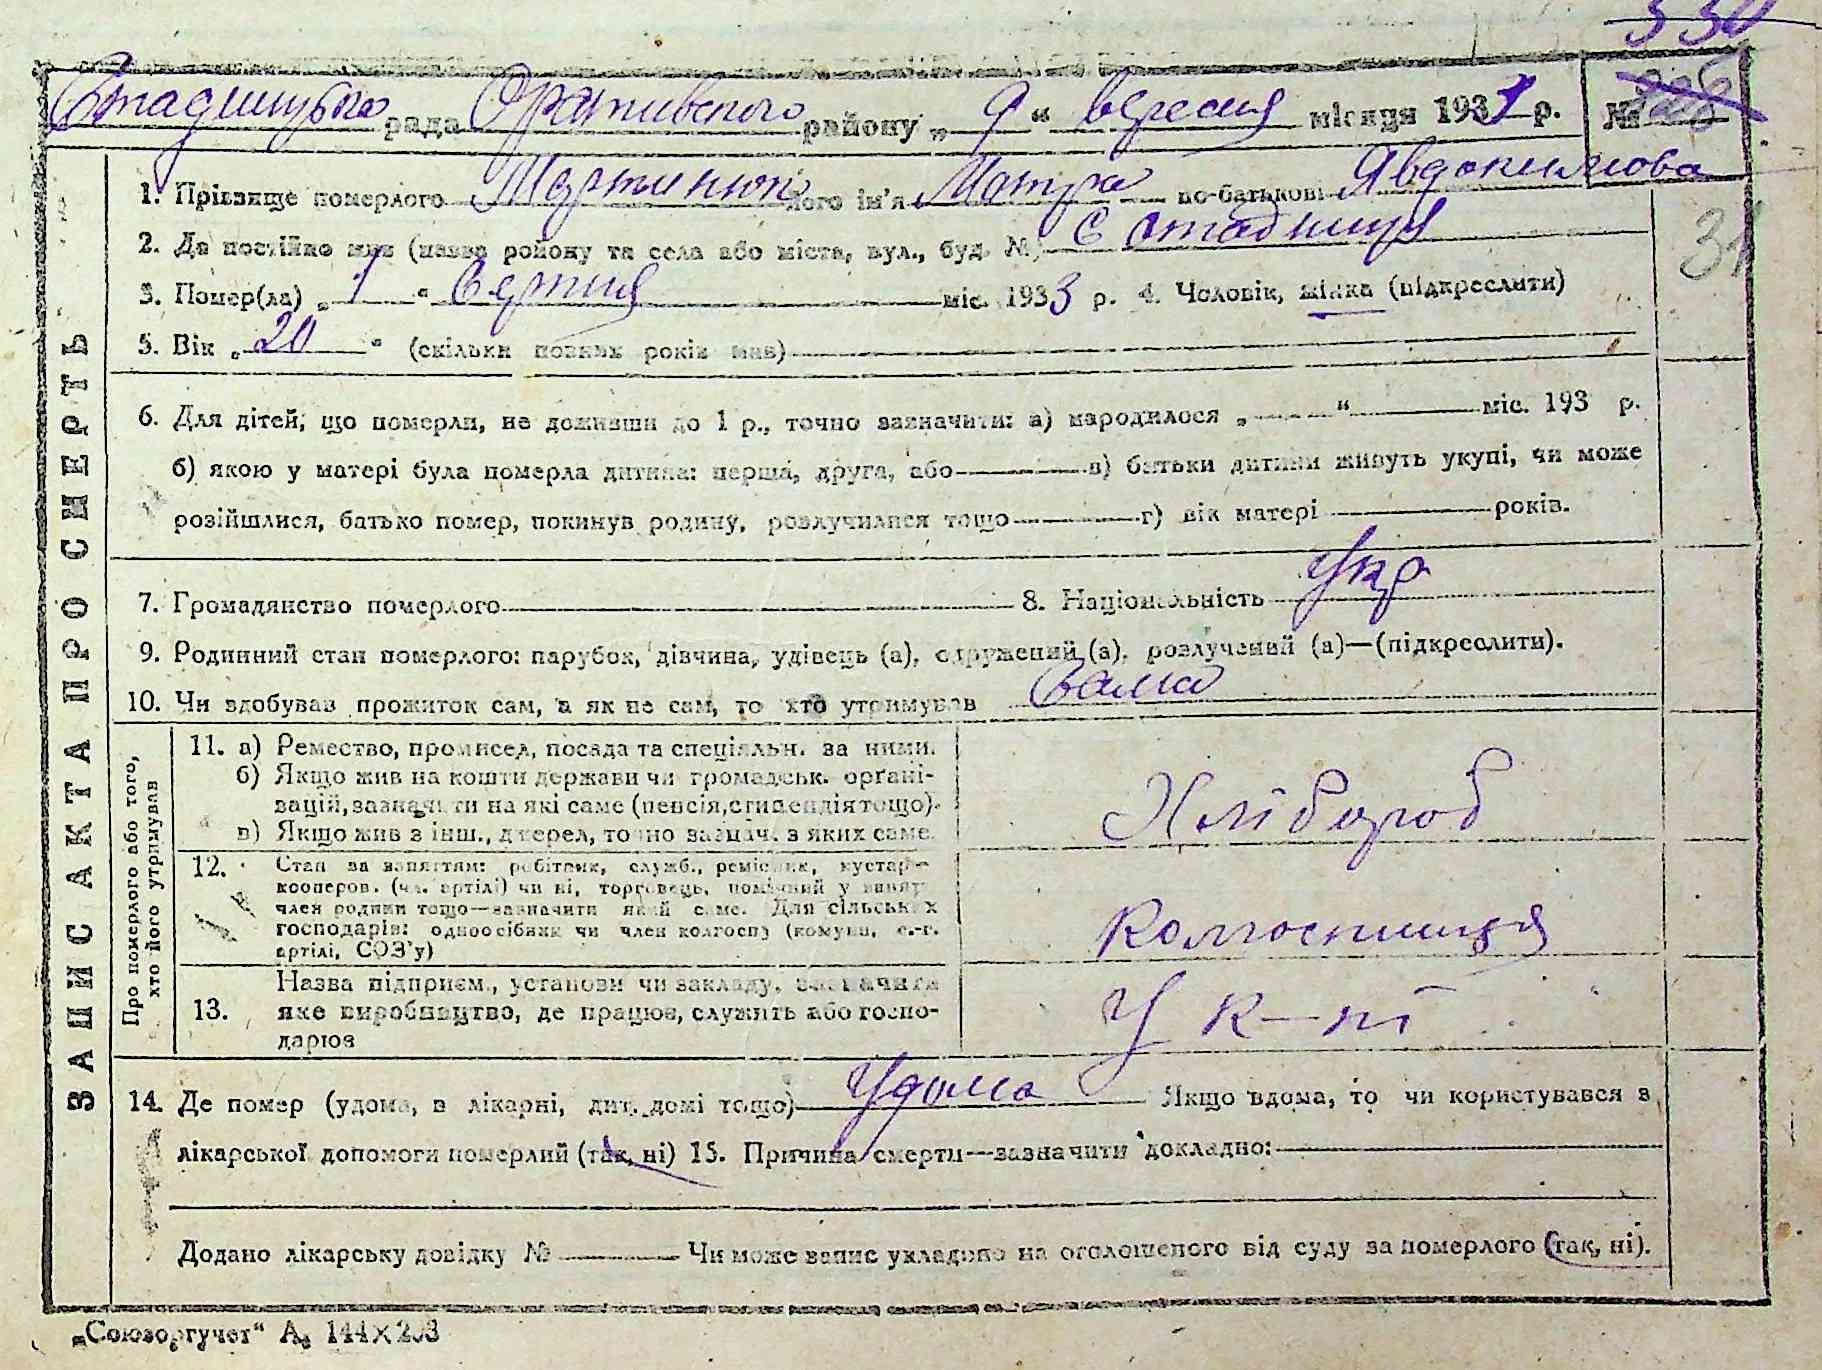 330
Стадницька рада Оратівського району „ 9 “ вересня місяця 1933 р. №
1. Прізвище померлого Мартинюк його ім'я Мотря по-батькові Явдокимова
2. Де постійно жив (назва району та села або міста, вул., буд. №) С Стадниця
31
3. Помер(ла) „ 1 “ серпня міс. 1933 р. 4. Чоловік, жінка (підкреслити)
5. Вік „ 20 “ (скільки повних років мав)
6. Для дітей, що померли, не доживши до 1 р., точно зазначити: а) народилося „ “ міс. 193 р.
б) якою у матері була померла дитина: перша, друга, або в) батьки дитини живуть укупі, чи може
розійшлися, батько помер, покинув родину, розлучилися тощо г) вік матері років.
7. Громадянство померлого 8. Національність Укр
9. Родинний стан померлого: парубок, дівчина, удівець (а), одружений (а), розлучений (а)—(підкреслити).
10. Чи здобував прожиток сам, а як не сам, то хто утримував Сама
ЗАПИС АКТА ПРО СМЕРТЬ
Про померлого або того, хто його утримував
11. а) Ремество, промисел, посада та спеціяльн. за ними.
б) Якщо жив на кошти держави чи громадськ. орґані-
зацій, зазначити на які саме (пенсія, стипендія тощо).
в) Якщо жив з інш., джерел, точно зазнач. з яких саме.
Хлібороб
12. Стан за заняттям: робітник, служб., ремісник, кустар-
кооперов. (чл. артілі) чи ні, торговець, помічний у занят.
член родини тощо—зазначити який саме. Для сільських
господарів: одноосібник чи член колгоспу (комуни, с.-г.
артілі, СОЗ'у)
Колгоспниця
13. Назва підприєм., установи чи закладу, зазначити
яке виробництво, де працює, служить або госпо-
дарює
У к-пі
14. Де помер (удома, в лікарні, дит. домі тощо) Удома Якщо вдома, то чи користувався з
лікарської допомоги померлий (так, ні) 15. Причина смерти—зазначити докладно:
Додано лікарську довідку № Чи може запис укладено на оголошеного від суду за померлого (так, ні).
„Союзоргучет“ А5 144×203